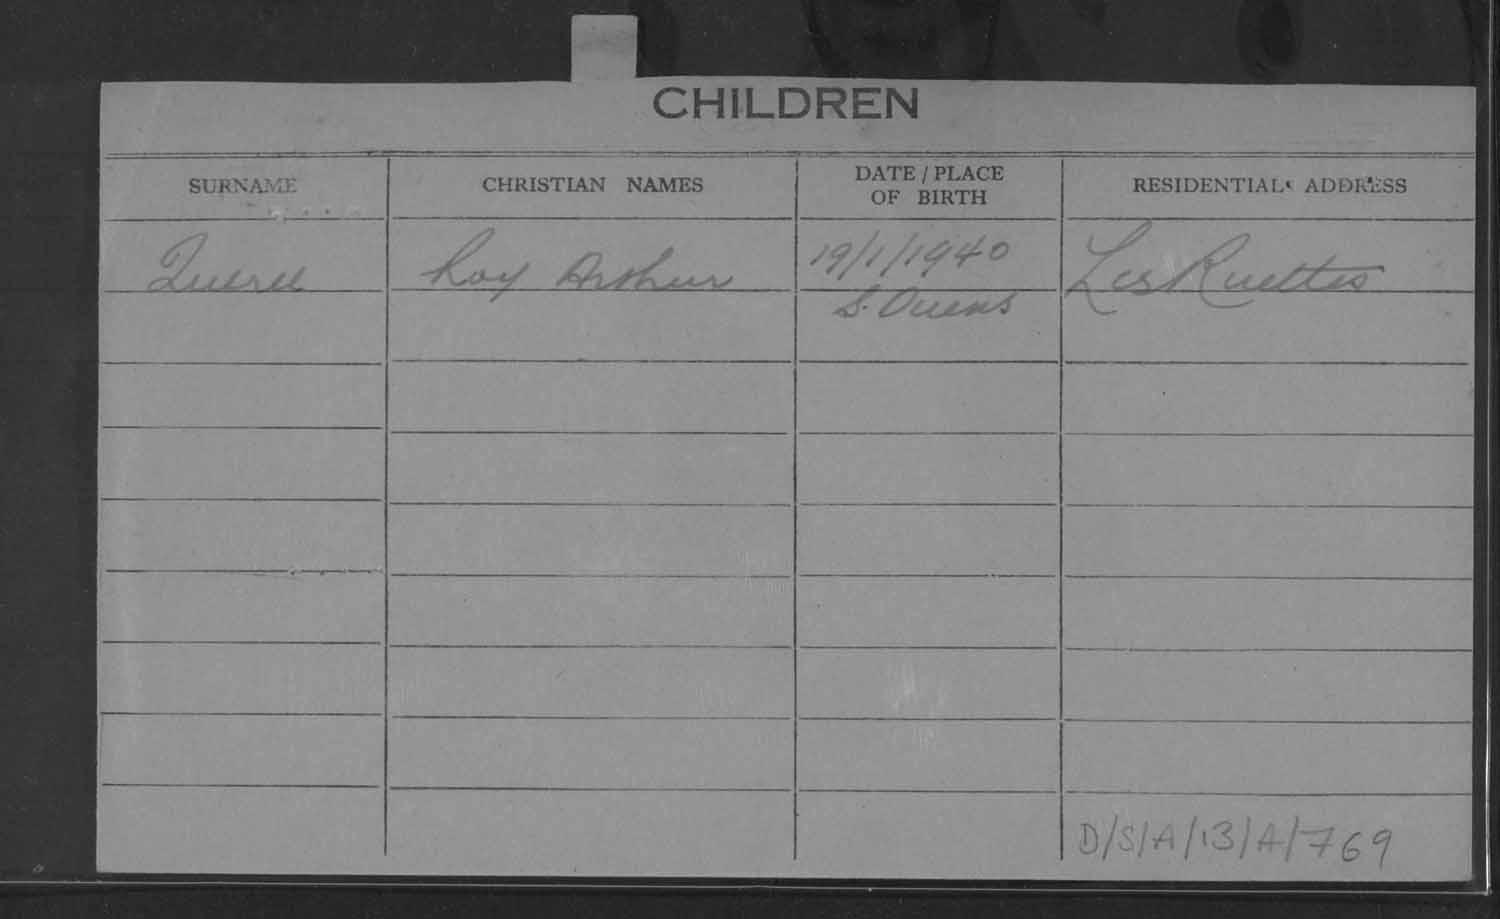 CHILDREN
SURNAME CHRISTIAN NAMES DATE / PLACE OF BIRTH RESIDENTIAL ADDRESS
Querée Roy Arthur 19/1/1940 Les Ruettes
S. Ouens
D/S/A/13/A/769